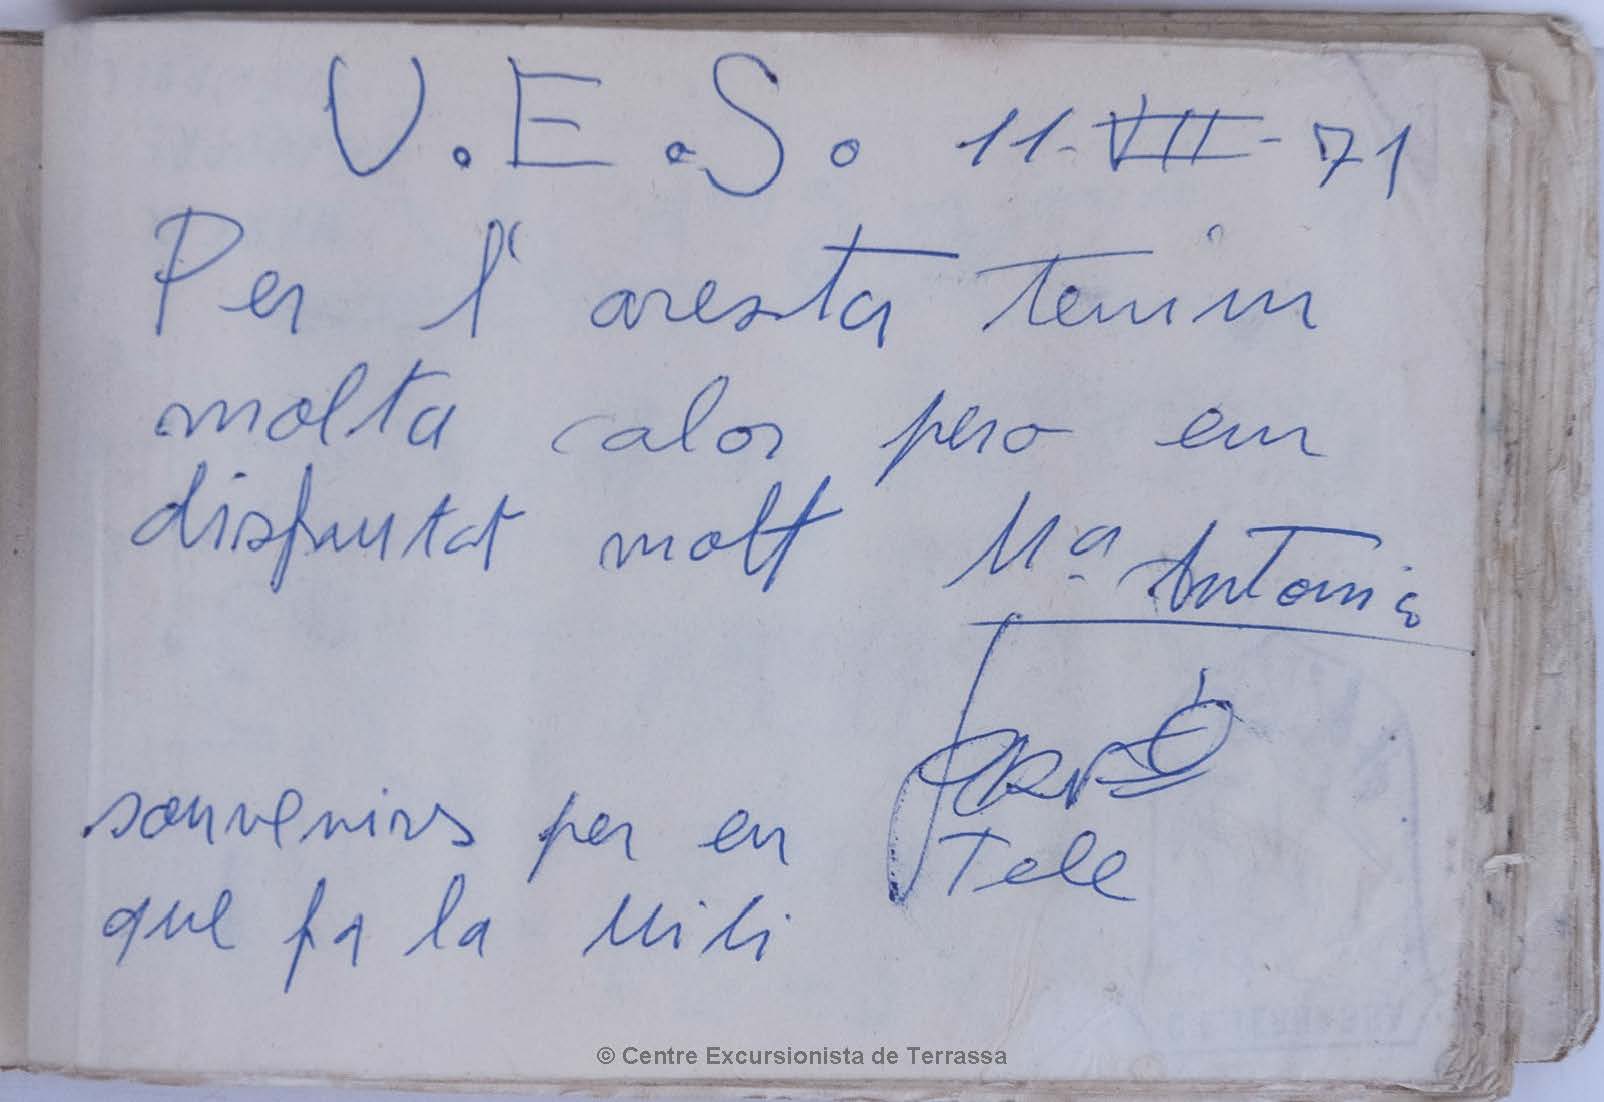 U.E.S. 11-VII-71
Per l'aresta tenim
molta calor pero em
disfrutat molt Mª Antonia
Tele
souvenirs per en
que fa la Mili
© Centre Excursionista de Terrassa